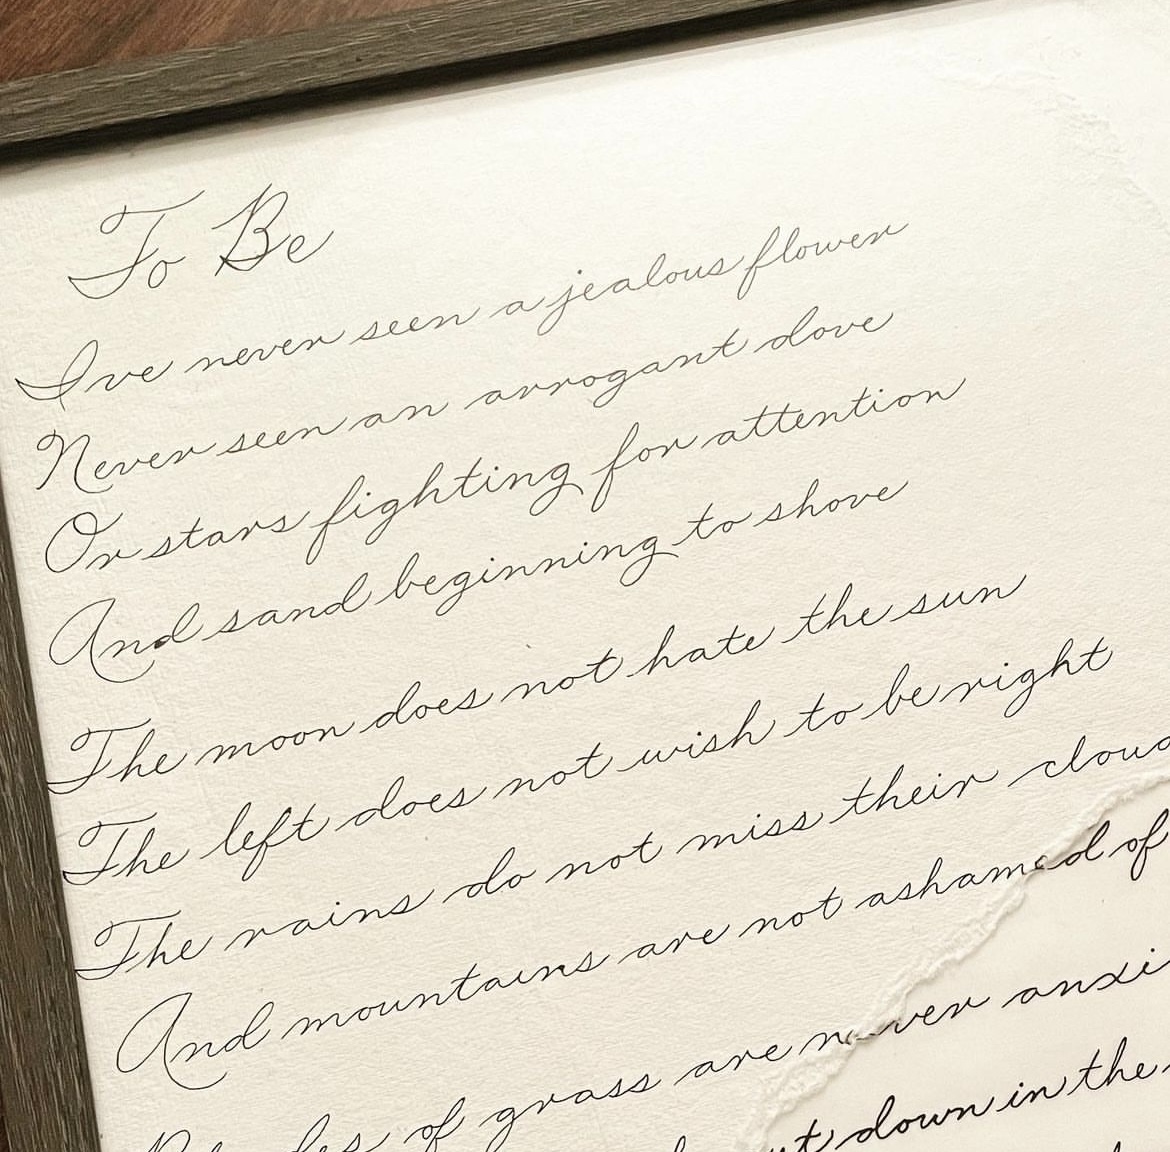 To Be
I've never seen a jealous flower
Never seen an arrogant dove
Or stars fighting for attention
And sand beginning to shove
The moon does not hate the sun
The left does not wish to be right
The rains do not miss their cloud
And mountains are not ashamed of
Blades of grass are never anxi
down in the